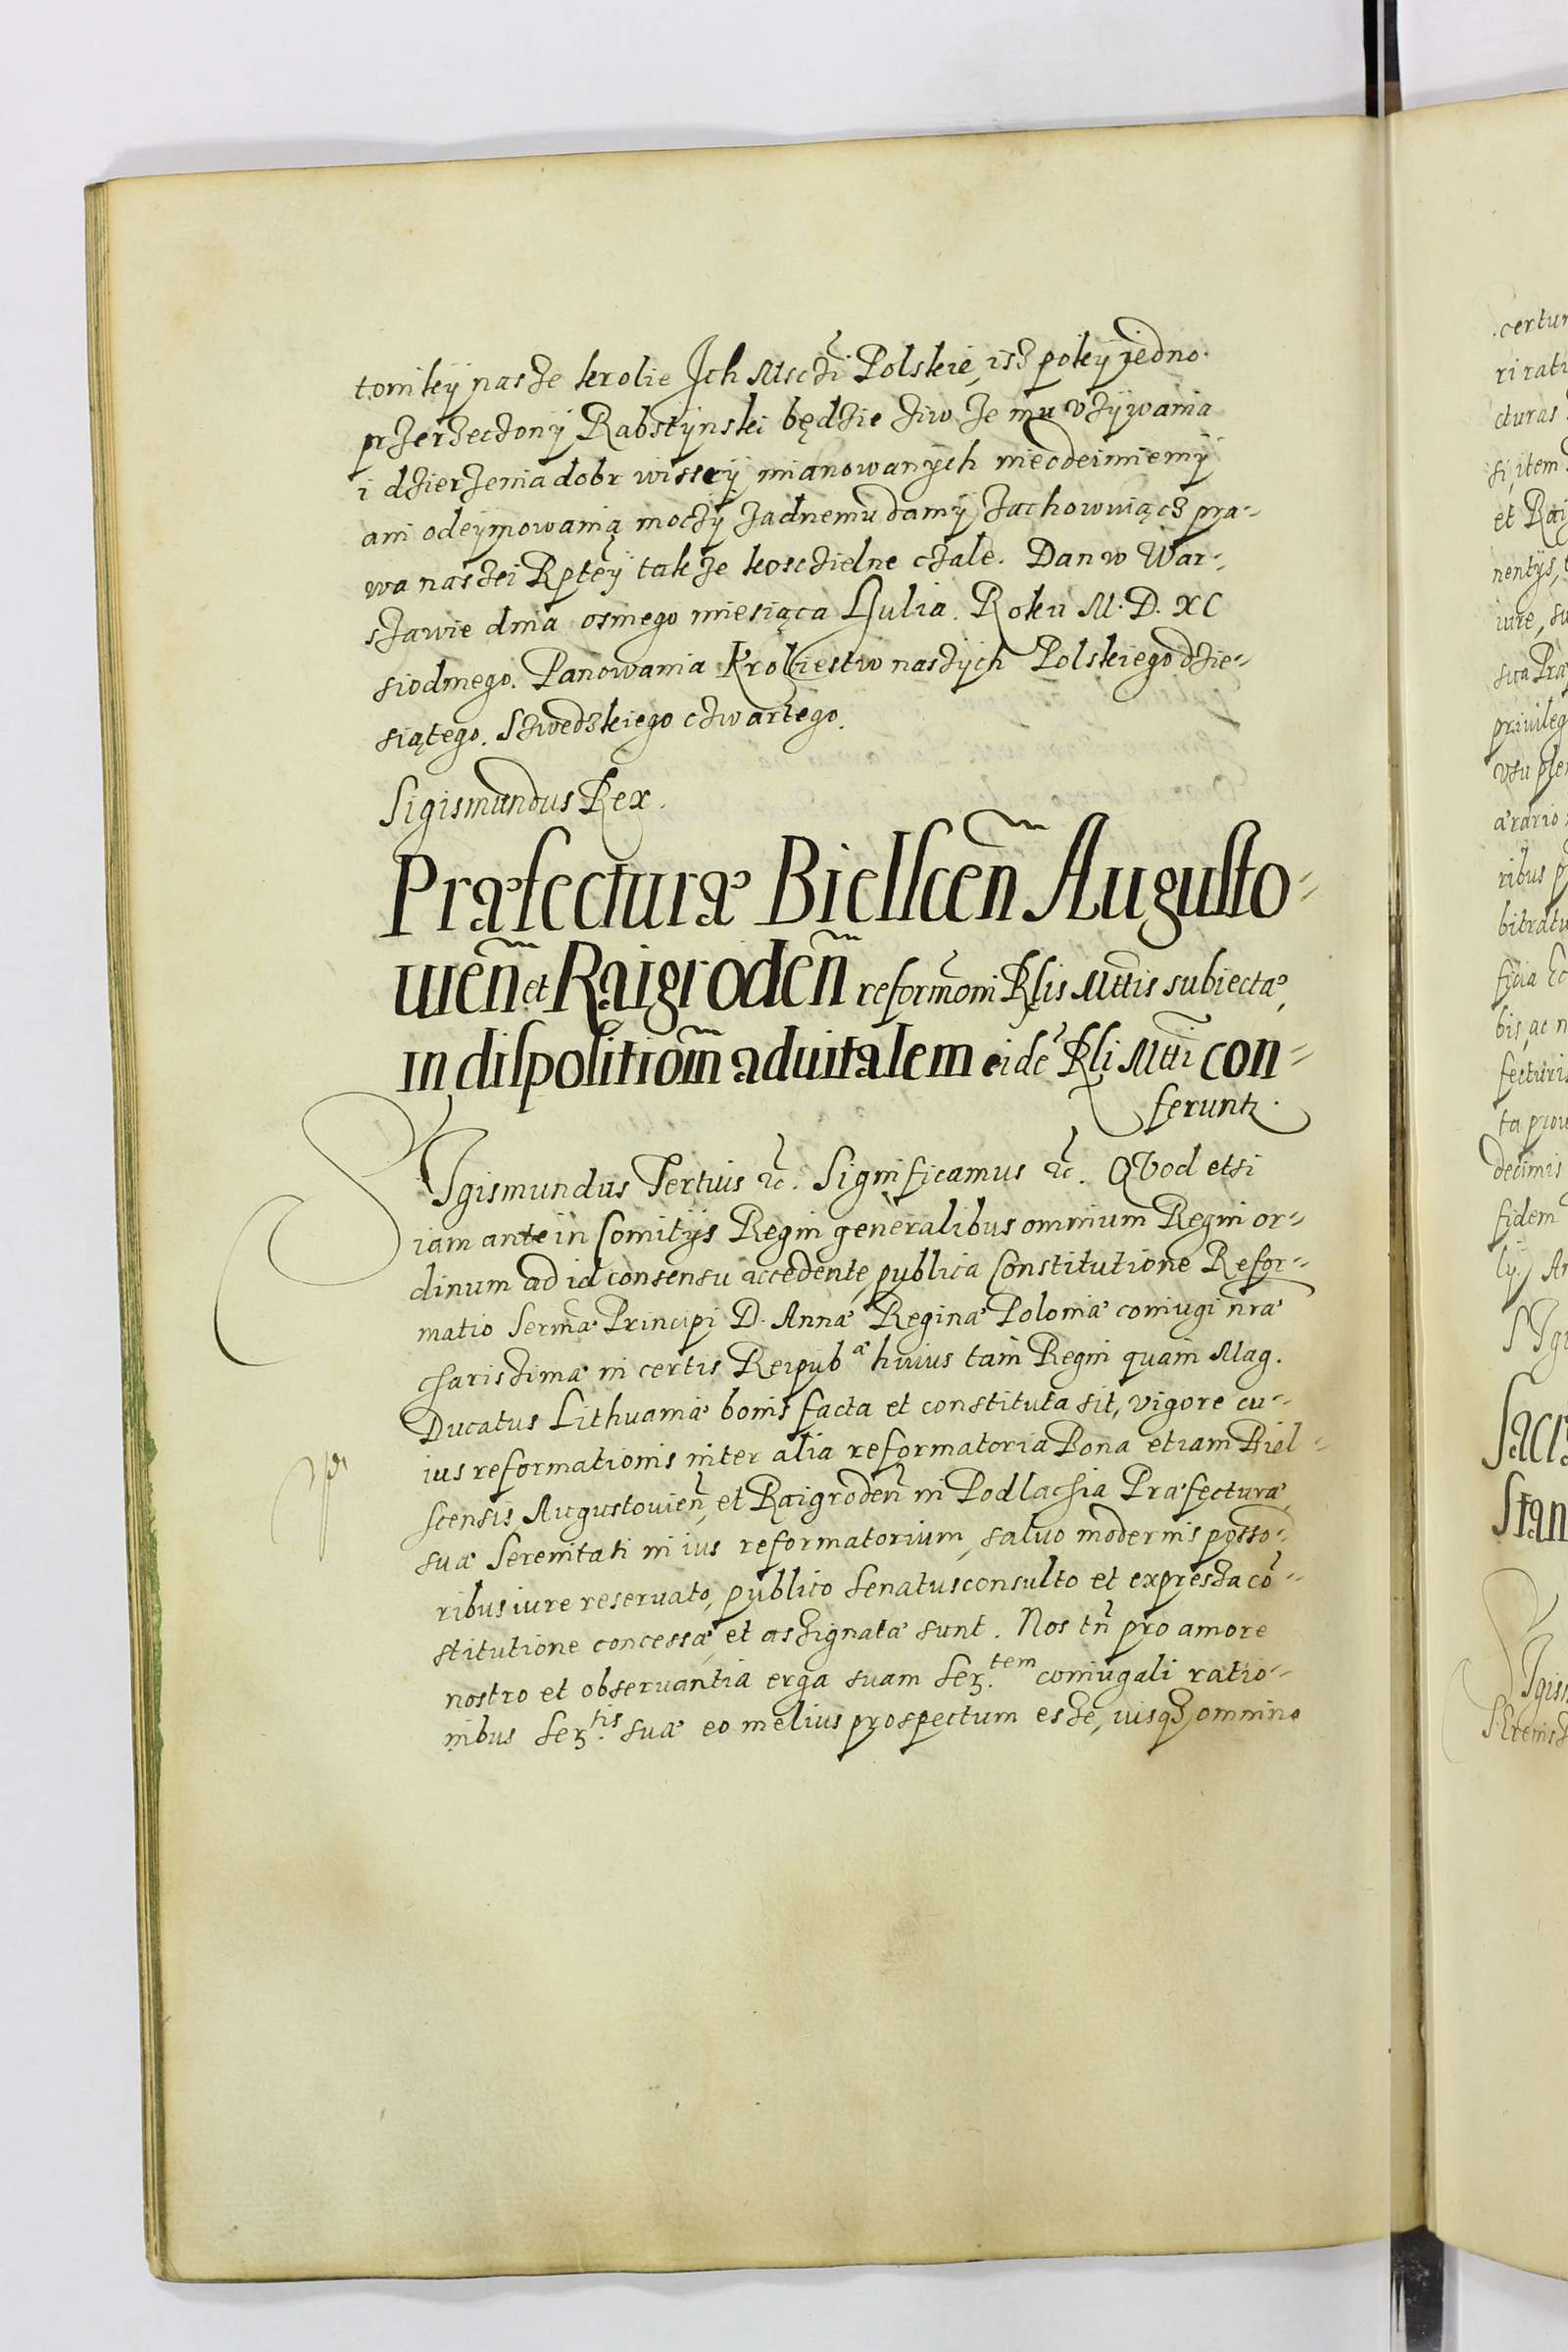 tomkÿ nasze krolie Ich Msczi Polskie, isz pokÿ jedno
przerzeczonÿ Rabstÿnski będzie ziw ze mu vzÿwania
i dzierzenia dobr wisseÿ mianowanÿch nieodeimiemÿ
ani odeÿmowania moczÿ zadnemu damÿ zachowuiącz pra-
wa naszei Rpteÿ takze kosczielne czale. Dan w War-
szawie dnia osmego miesiąca Julia. Roku M.D.XC
siodmego. Panowania Kroliestw naszÿch Polskiego dzie-
siątego. Szwedzkiego czwartego.
Sigismundus Rex.
Præfecturæ Bielscen̄ Augusto-
uien̄ et Raigroden̄ reform̄oni R̄lis Mttis subiectæ,
in dispositiom̄ aduitalem eidē R̄li Mtti con-
ferunt.
SIgismundus Tertius &c. Significamus &c. QVod etsi
iam ante in Comitÿs Regni generalibus omnium Regni or-
dinum ad id consensu accedente, publica Constitutione Refor-
matio Serm̄æ Principi D. Annæ Reginæ Poloniæ coniugi nr̄æ
charissimæ in certis Reipubᵃ huius tam Regni quam Mag.
Ducatus Lithuaniæ bonis facta et constituta sit, vigore cu-
ius reformationis inter alia reformatoria Bona etiam Biel-
scensis Augustouien̄, et Raigroden̄ in Podlachia Præfecturæ
suæ Serenitati in ius reformatorium, saluo modernis posso-
ribus iure reseruato, publico Senatusconsulto et expressa cō-
stitutione concessæ, et assignatæ sunt. Nos tn̄ pro amore
nostro et obseruantia erga suam Ser.tem coniugali ratio-
nibus Ser.tis suæ eo melius prospectum esse, iusqз omnino